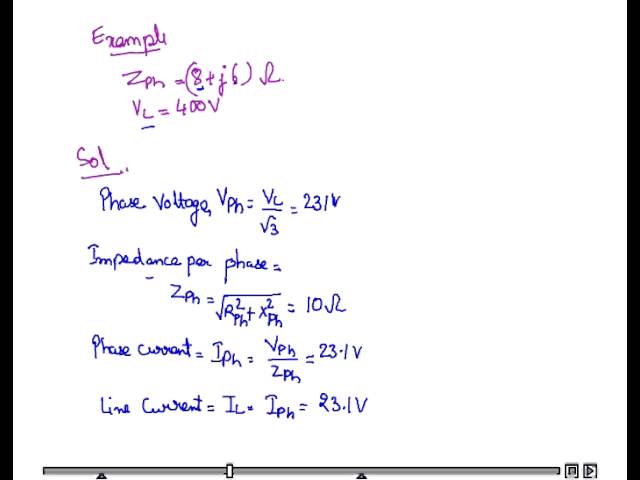 Example
Zph = (8+j6) Ω.
VL = 400V
Sol..
Phase Voltage, Vph = VL/√3 = 231V
Impedance per phase =
Zph = √(R²ph + X²ph) = 10Ω
Phase current = Iph = Vph/Zph = 23.1V
Line Current = IL = Iph = 23.1V